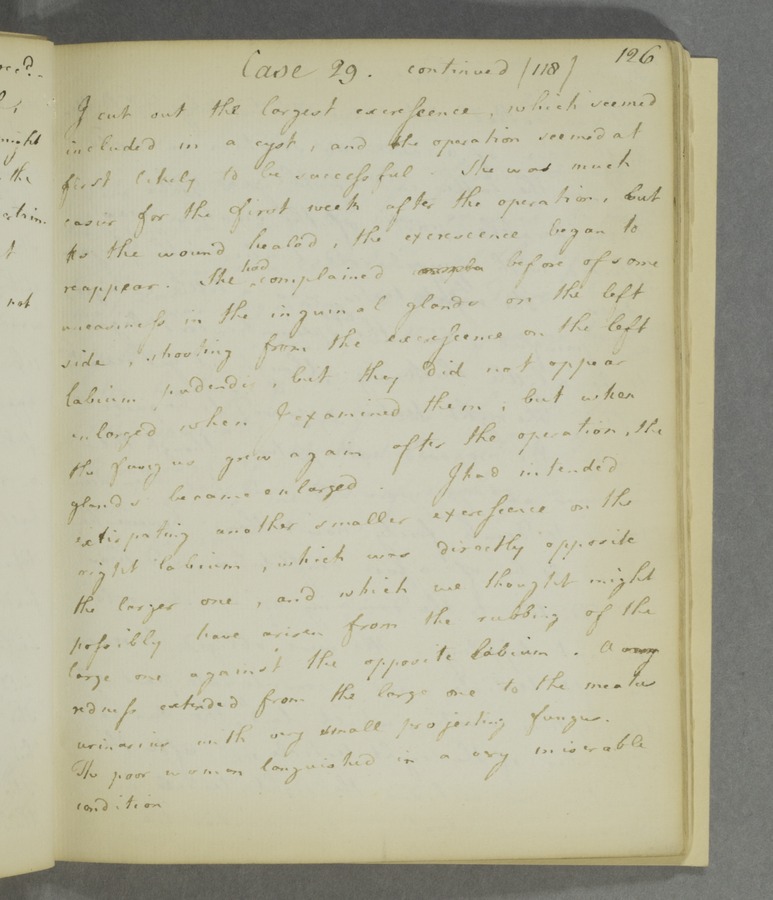 126
Case 29. continued [118]
I cut out the largest excrescence, which seemed
included in a cyst, and the operation seemed at
first likely to be successful. She was much
easier for the first week after the operation, but
as the wound healed, the excrescence began to
reappear. She had complained before of some
uneasiness in the inguinal glands on the left
side, shooting from the excrescence on the left
labium pudendi, but they did not appear
enlarged when I examined them; but when
the fungus grew again after the operation, the
glands became enlarged. I had intended
extirpating another smaller excrescence on the
right labium, which was directly opposite
the larger one, and which we thought might
possibly have arisen from the rubbing of the
large one against the opposite labium. A
redness extended from the large one to the meatus
urinarius with very small projecting fungus.
The poor woman languished in a very miserable
condition
night
the
not